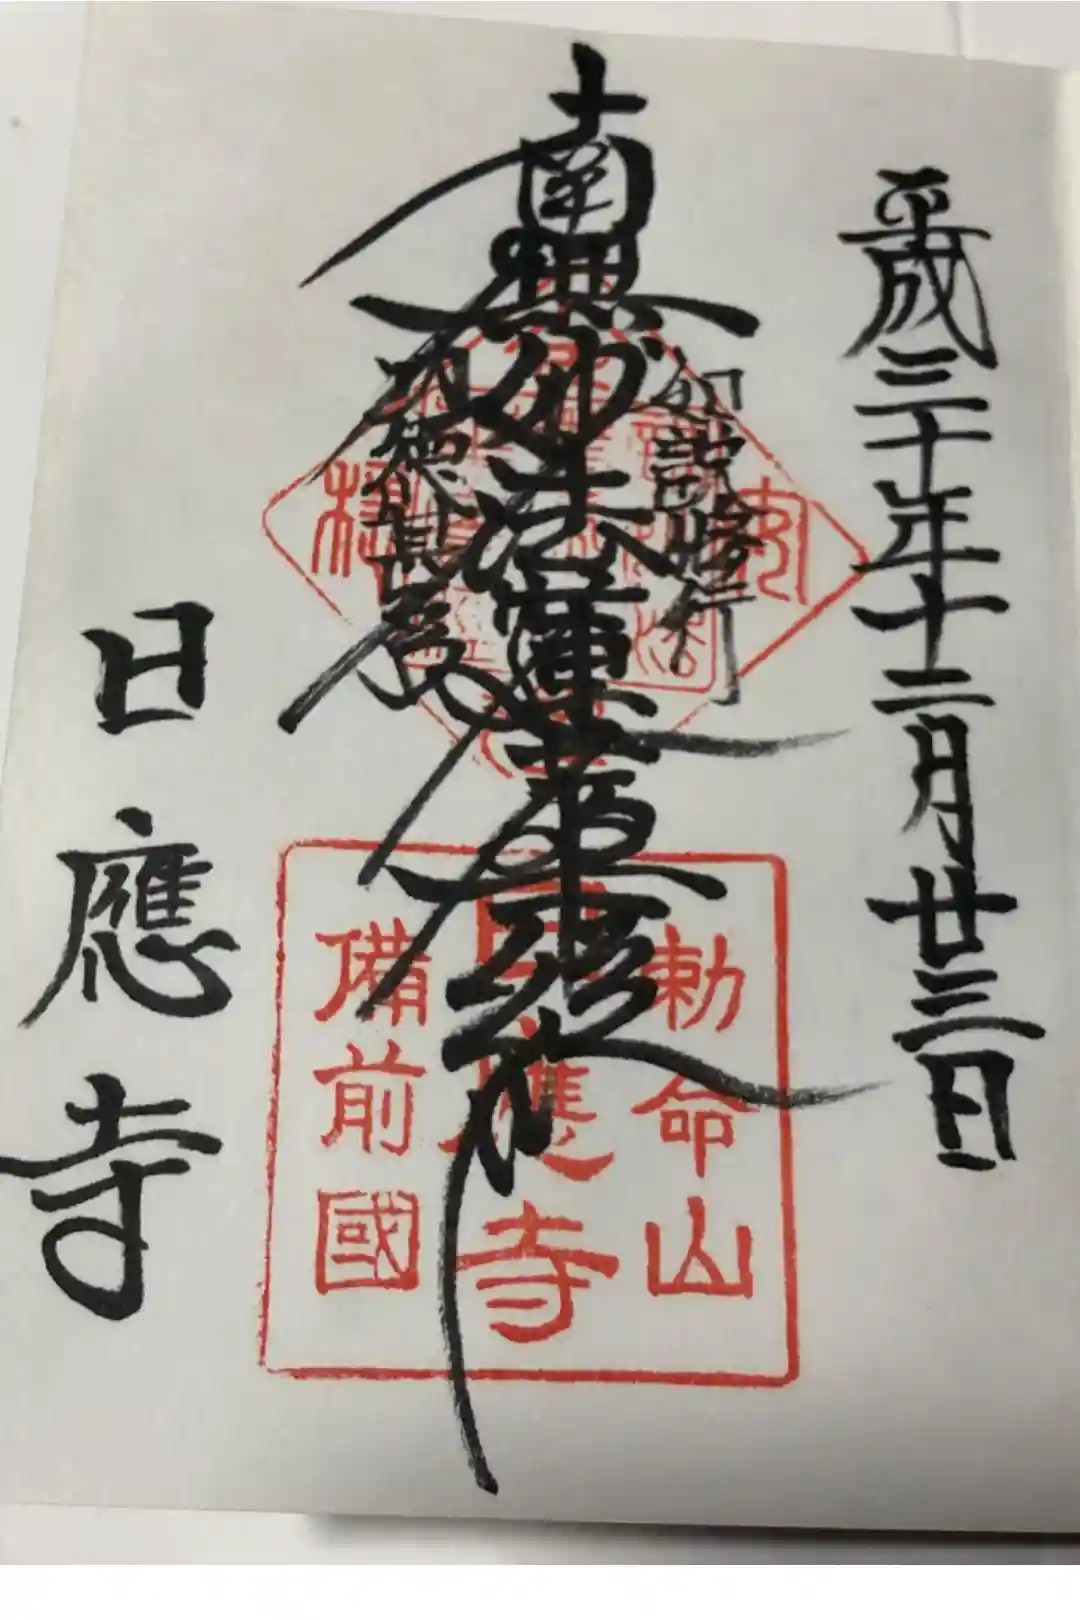 平成三十年十二月廿三日
如説修行
南無妙法蓮華経
功徳甚
日應寺
勅命山
日應寺
備前國